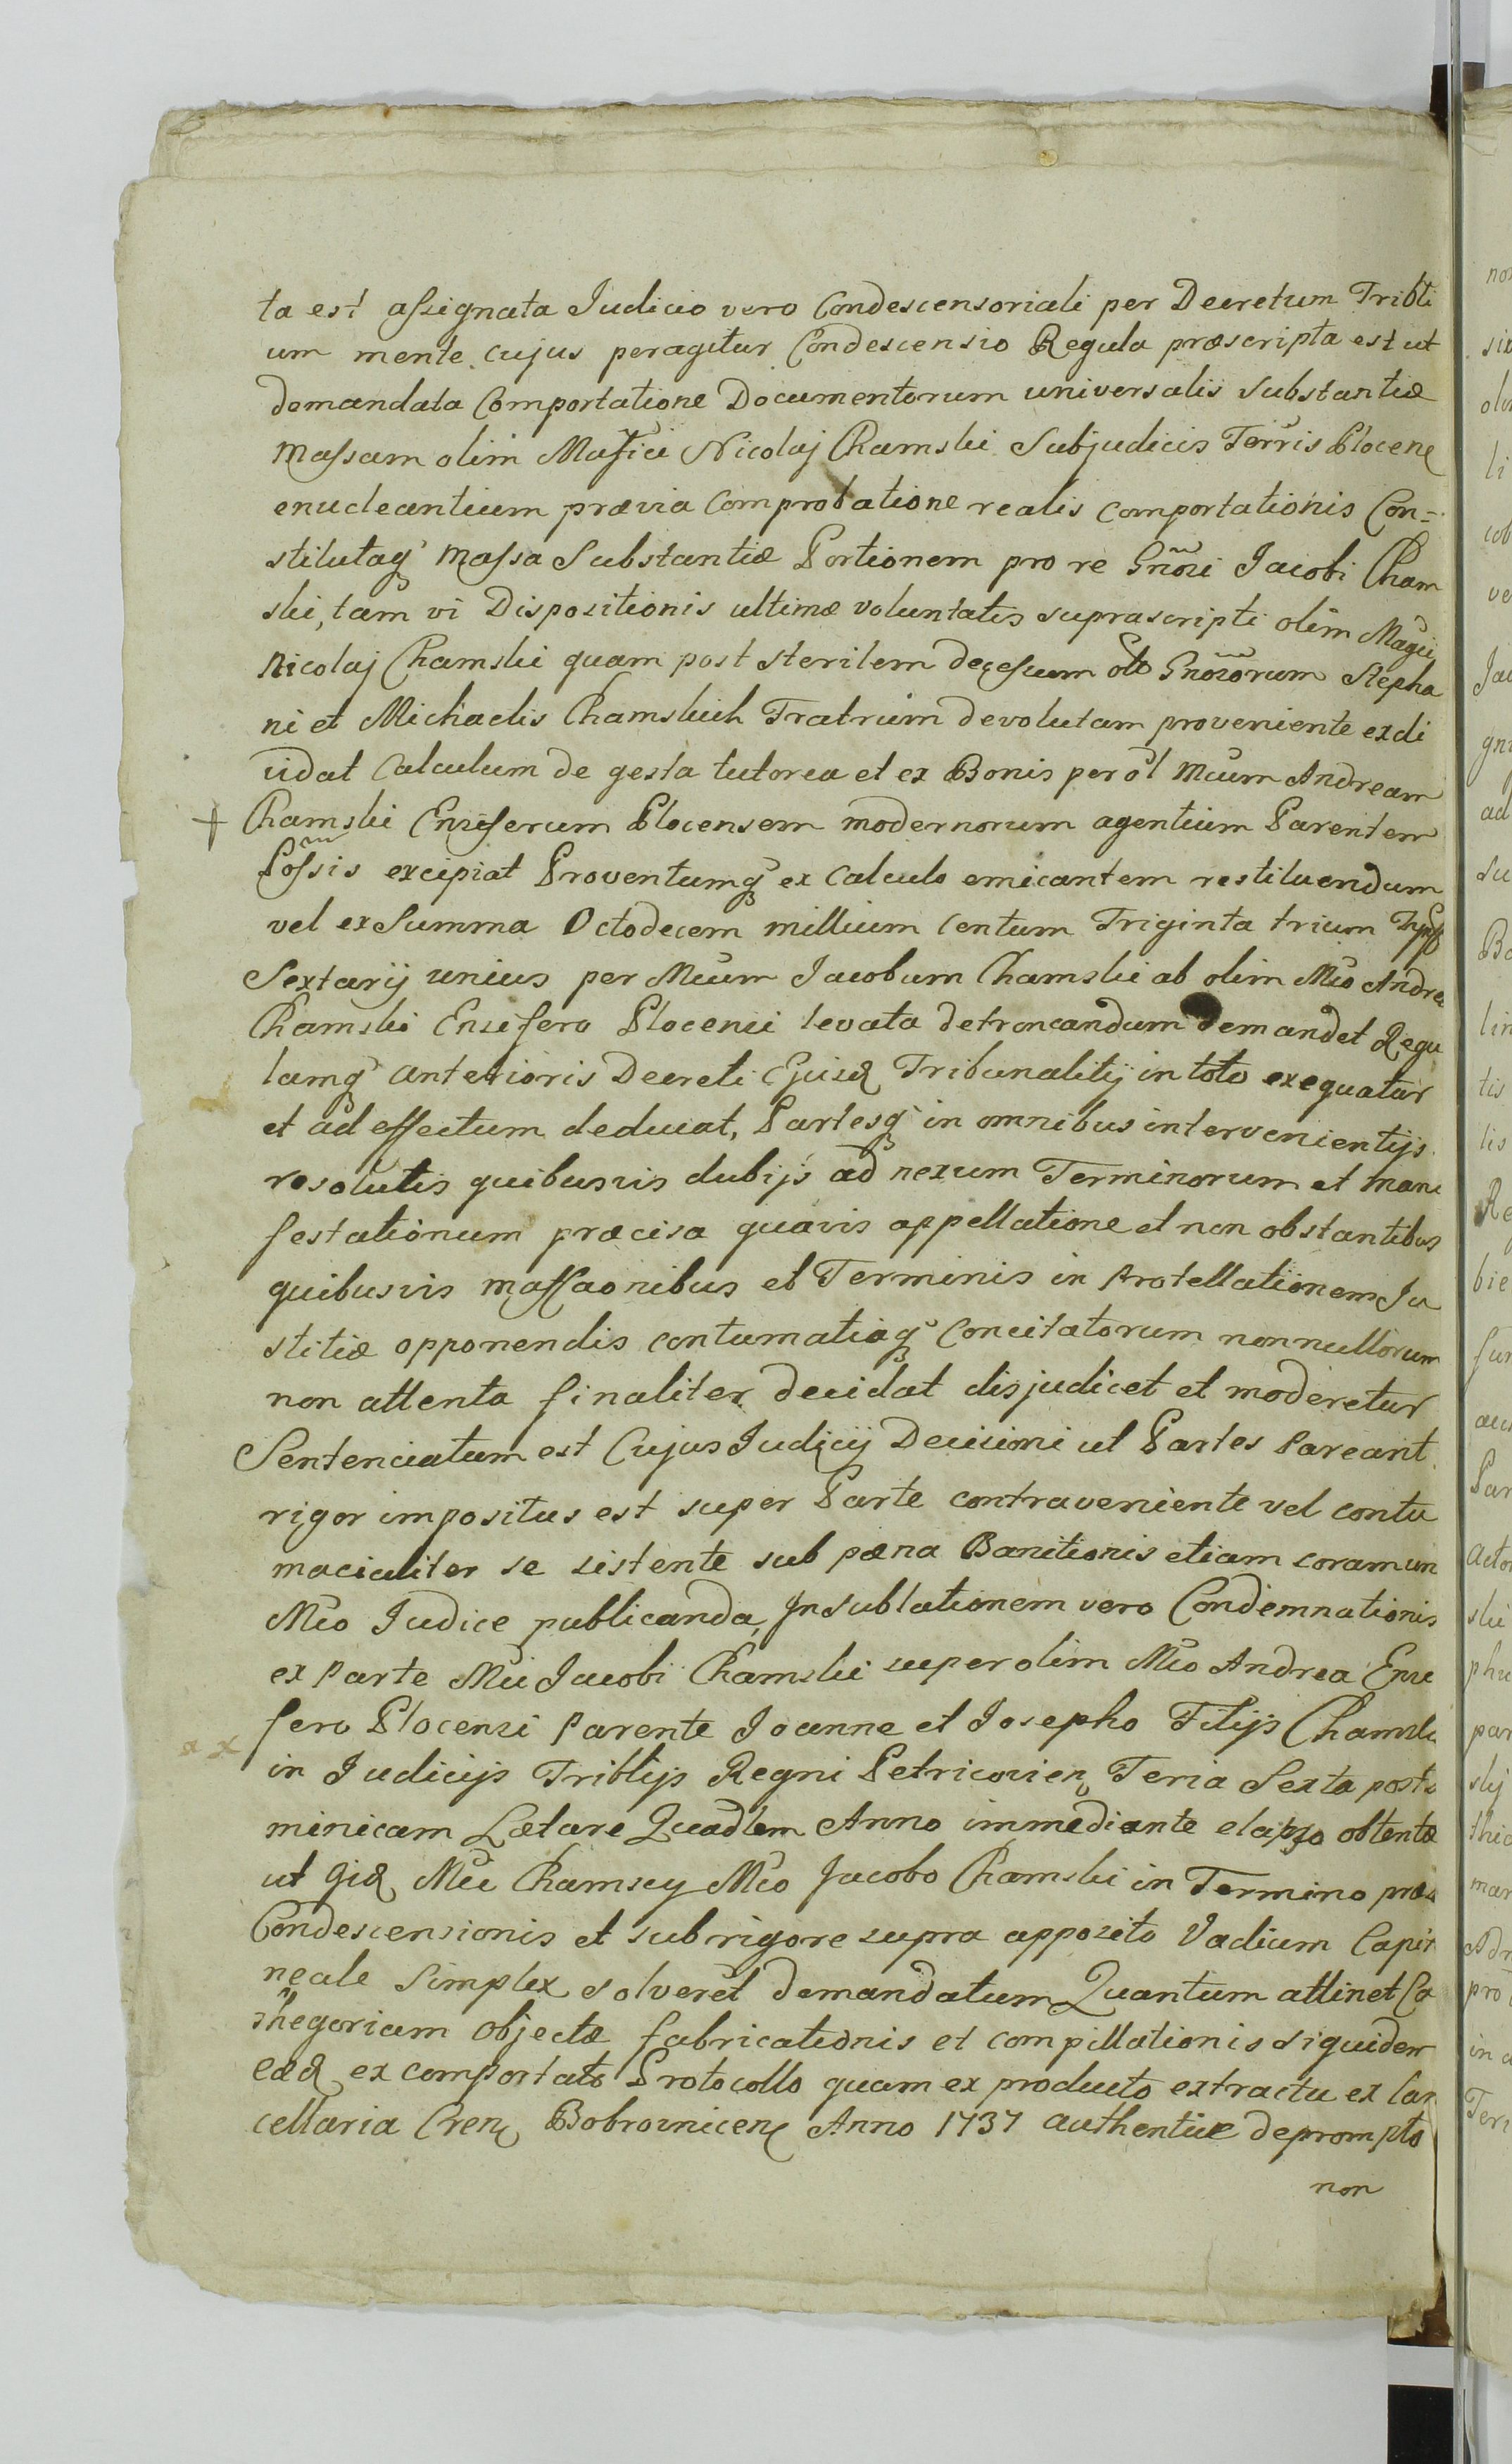 ta est assignata Judicio vero Condescensoriali per Decretum Tribli
um mente cujus peragitur Condescensio Regula præscripta est ut
demandata Comportatione Documentorum universalis substantiæ
Massam olim Mafici Nicolaj Chamski Subjudicis Terris Plocen
enucleantium prævia comprobatione realis comportationis Con=
stitutaq massa Substantiæ Portionem pro re Gnõsi Jacobi Cham
ski, tam vi Dispositionis ultimæ voluntatis suprascripti olim Magci
Nicolaj Chamski quam post sterilem decessum ol Gnõsorum Stepha
ni et Michaelis Chamskich Fratrum devolutam proveniente exdi
vidat Calculum de gesta tutorea et ex Bonis per ol Mcum Andream
+ Chamski Ensiferum Plocensem modernorum agentium Parentem
Possis excipiat Proventumq ex Calculo emicantem restituendum
vel ex Summa Octodecem millium Centum Triginta trium Tynff
Sextarij unius per Mcum Jacobum Chamski ab olim Mco Andrea
Chamski Ensifero Plocensi levata detroncandum demandet Regu
lamq anterioris Decreti Ejusd Tribunalitij in toto exequatur
et ad effectum deducat, Partesq in omnibus intervenientijs
resolutis quibusvis dubijs ad nexum Terminorum et mani
festationum præcisa quavis appellatione et non obstantibus
quibusvis maffaonibus et Terminis in Protellationem Ju
stitiæ opponendis contumatiaq Concitatorum nonnullorum
non attenta finaliter decidat disjudicet et moderetur
Sentenciatum est Cujus Judicij Decisioni ut Partes Pareant
rigor impositus est super Parte contraveniente vel contu
macialiter se sistente sub pæna Banitionis etiam coram un
Mco Judice publicanda, Insublationem vero Condemnationis
ex Parte Mci Jacobi Chamski super olim Mco Andrea Ensi
fero Plocensi Parente Joanne et Josepho Filijs Chamski
x x in Judicijs Triblijs Regni Petricovien Feria Sexta post
minicam Lætare Quadlem Anno immediante elapso obtentæ
ut Iid Mci Chamscy Mco Jacobo Chamski in Termino præs
Condescensionis et sub rigore supra apposito Vadium Capi
neale simplex solveret demandatum Quantum attinet Ca
thegoriam objectæ fabricationis et compillationis siquidem
ead ex comportato Protocollo quam ex producto extractu ex Can
cellaria Cren Bobrovnicen Anno 1737 authentice deprompto
non